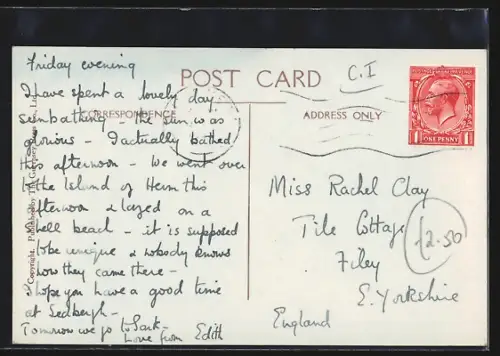 Friday evening
POST CARD
C.I
I have spent a lovely day
CORRESPONDENCE
ADDRESS ONLY
sunbathing – the sun was
glorious – I actually bathed
this afternoon – we went over
to the Island of Herm this
afternoon & lazed on a
shell beach – it is supposed
to be unique & nobody knows
how they came there –
I hope you have a good time
at Sedbergh –
Tomorrow we go to Sark –
Love from Edith
Miss Rachel Clay
Tile Cottage
Filey
E. Yorkshire
England
£2.50
1 ONE PENNY 1
Copyright. Published by The